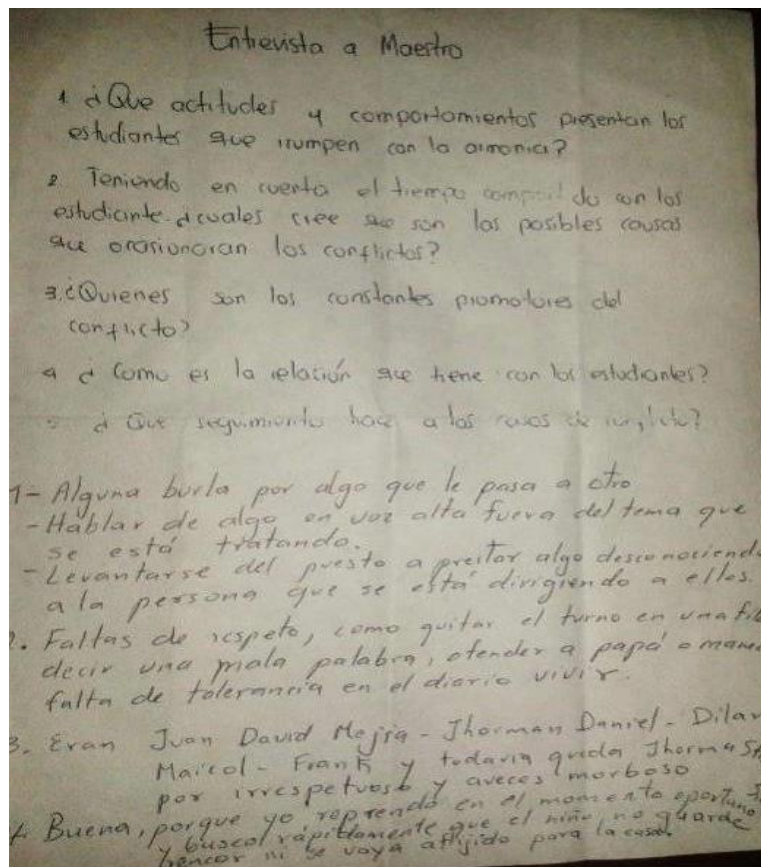 Entrevista a Maestro
1 ¿Que actitudes y comportamientos presentan los
estudiantes que irumpen con la armonia?
2 Teniendo en cuenta el tiempo compartido con los
estudiante ¿cuales cree que son las posibles causas
que orasionaran los conflictos?
3. ¿Quienes son los constantes promotores del
conflicto?
4 ¿Como es la relación que tiene con los estudiantes?
¿Que seguimiento hace a los casos de conflicto?
1- Alguna burla por algo que le pasa a otro
- Hablar de algo en voz alta fuera del tema que
se está tratando.
- Levantarse del puesto a preitar algo desconociendo
a la persona que se está dirigiendo a ellos.
2. Faltas de respeto, como quitar el turno en una
decir una mala palabra, ofender a papá o
falta de tolerancia en el diario vivir.
3. Eran Juan David Mejia - Jhorman Daniel -
Maicol - Frank y todavia queda
por irrespetuoso y aveces morboso
4. Buena, porque yo reprendo en el momento oportuno
y busco rápidamente que el niño no guarde
rencor ni se vaya aflijido para la casa.